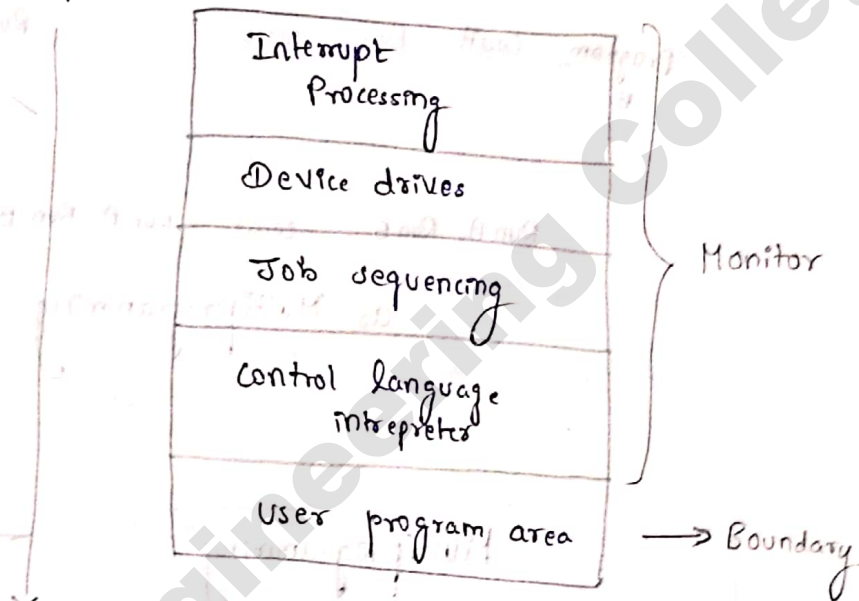 Interrupt
Processing
Device drives
Job sequencing
Control language
intrepreter
User program area
Monitor
→ Boundary